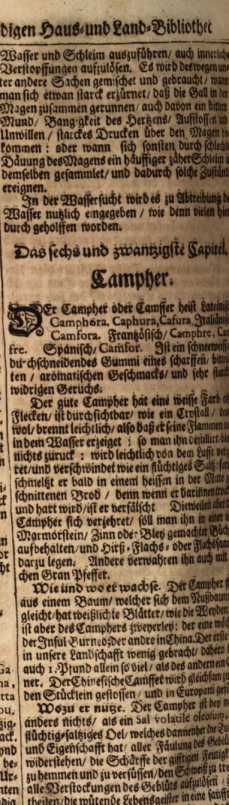 digen Haus- und Land-Bibliothec
Wasser und Schleim auszuführen / auch innerliche
Verstopffungen aufzulösen. Es wird deßwegen
ter andere Sachen gemischet und gebraucht / wann
man sich etwan starck erzürnet / daß die Gall in den
Magen zusammen gerunnen / auch davon ein bitterer
Mund / Bangigkeit des Hertzens / Aufstossen
Unwillen / starckes Drucken über den Magen
kommen: oder wann sich sonsten durch schlechte
Däuung des Magens ein häuffiger zäher Schleim in
demselben gesammlet / und dadurch solche Zufälle
ereignen.
In der Wassersucht wird es zu Abtreibung des
Wasser nutzlich eingegeben / wie denn vielen
durch geholffen worden.
Das sechs und zwantzigste Capitel.
Campher.
DEr Campher oder Camffer heist Lateinisch
Camphora, Caphura, Cafura, Italiänisch
Camfora. Frantzösisch / Camphre,
fre. Spanisch / Camfor. Ist ein schneeweiß
durchscheinendes Gummi eines scharffen / bittern
ten / aromatischen Geschmacks / und sehr starck
widrigen Geruchs.
Der gute Campher hat eine weisse Farb
Flecken / ist durchsichtbar / wie ein Crystall /
wol / brennt leichtlich / also daß er seine Flammen
in dem Wasser erzeiget: so man ihn
nichts zurück: wird leichtlich von dem Lufft
ret / und verschwindet wie ein flüchtiges Saltz /
schmeltzt er bald in einem heissen in der Mitte
schnittenen Brod / denn wenn er darinnen
und hart wird / ist er verfälscht. Dieweilen aber
Campher sich verzehret / soll man ihn in einer
Marmorstein / Zinn oder Bley gemachter Büchs
aufbehalten / und Hirß- Flachs- oder Flöhsaamen
darzu legen. Andere verwahren ihn auch mit
chen Gran Pfeffer.
Wie und wo er wachse. Der Campher
aus einem Baum / welcher sich dem Nußbaum
gleicht / hat weißlichte Blätter / wie die Weyden
ist aber des Camphers zweyerley: der eine
der Insul Burneo der andre in China. Der erste
in unsere Landschafft wenig gebracht / dahero
auch 1. Pfund allein so viel / als des andern ein
ner. Der Chinesische Camffer wird gleichsam
den Stücklein gestossen / und in Europam
Wozu er nutze. Der Campher ist bey
anders nichts / als ein Sal volatile oleosum,
flüchtig-saltziges Oel / welches dannenher
und Eigenschafft hat / aller Fäulung des Geblüts
widerstehen / die Schärffe der gifftigen
zu hemmen und zu versüssen / den Schweiß zu
alle Verstockungen des Geblüts aufzulösen
theilen / die wütende Lebensgeister in eine sanffte